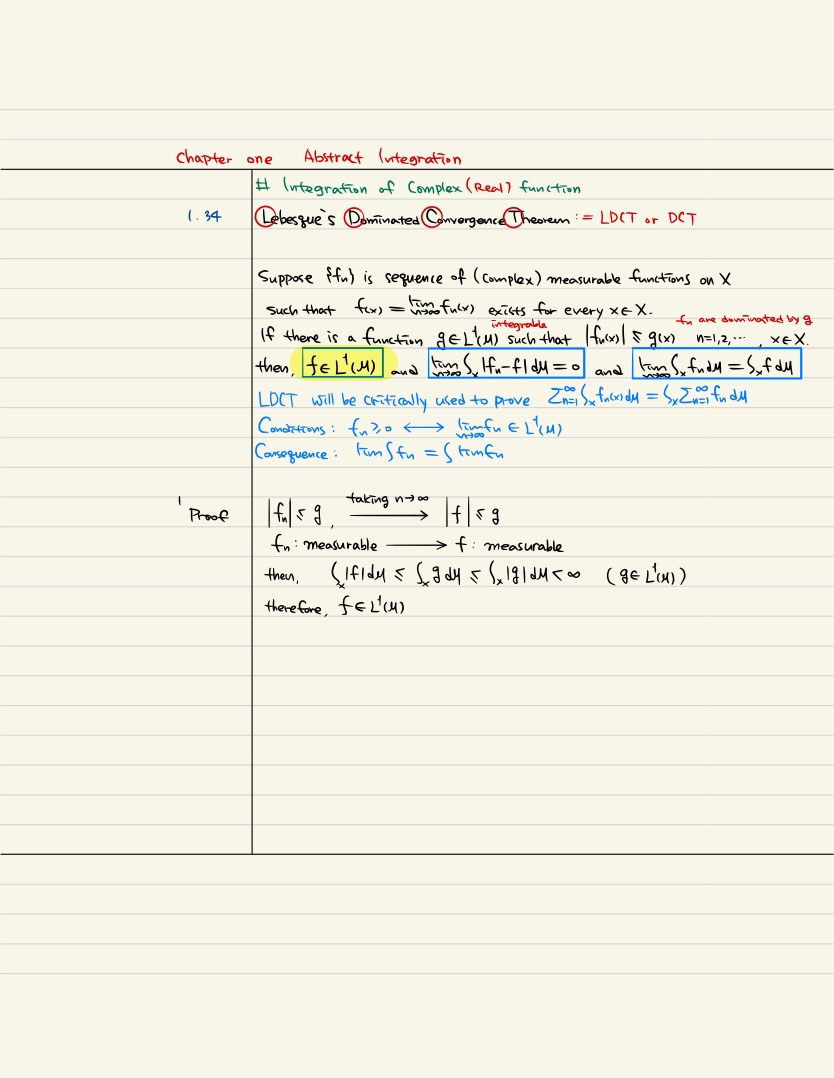 Chapter one Abstract Integration
# Integration of Complex (Real) function
1.34 Lebesgue's Dominated Convergence Theorem := LDCT or DCT
Suppose {fn} is sequence of (Complex) measurable functions on X
such that f(x) = lim n→∞ fn(x) exists for every x∈X.
integrable fn are dominated by g
If there is a function g∈L¹(μ) such that |fn(x)| ≤ g(x) n=1,2,⋯, x∈X.
then, f∈L¹(μ) and lim n→∞ ∫x |fn-f|dμ = 0 and lim n→∞ ∫x fn dμ = ∫x f dμ
LDCT will be critically used to prove Σ∞n=1 ∫x fn(x)dμ = ∫x Σ∞n=1 fn dμ
Conditions: fn ≥ 0 ⟷ lim n→∞ fn ∈ L¹(μ)
Consequence: lim ∫ fn = ∫ lim fn
taking n→∞
Proof |fn| ≤ g, ⟶ |f| ≤ g
fn: measurable ⟶ f: measurable
then, ∫x |f|dμ ≤ ∫x g dμ ≤ ∫x |g|dμ < ∞ (g∈L¹(μ))
therefore, f∈L¹(μ)